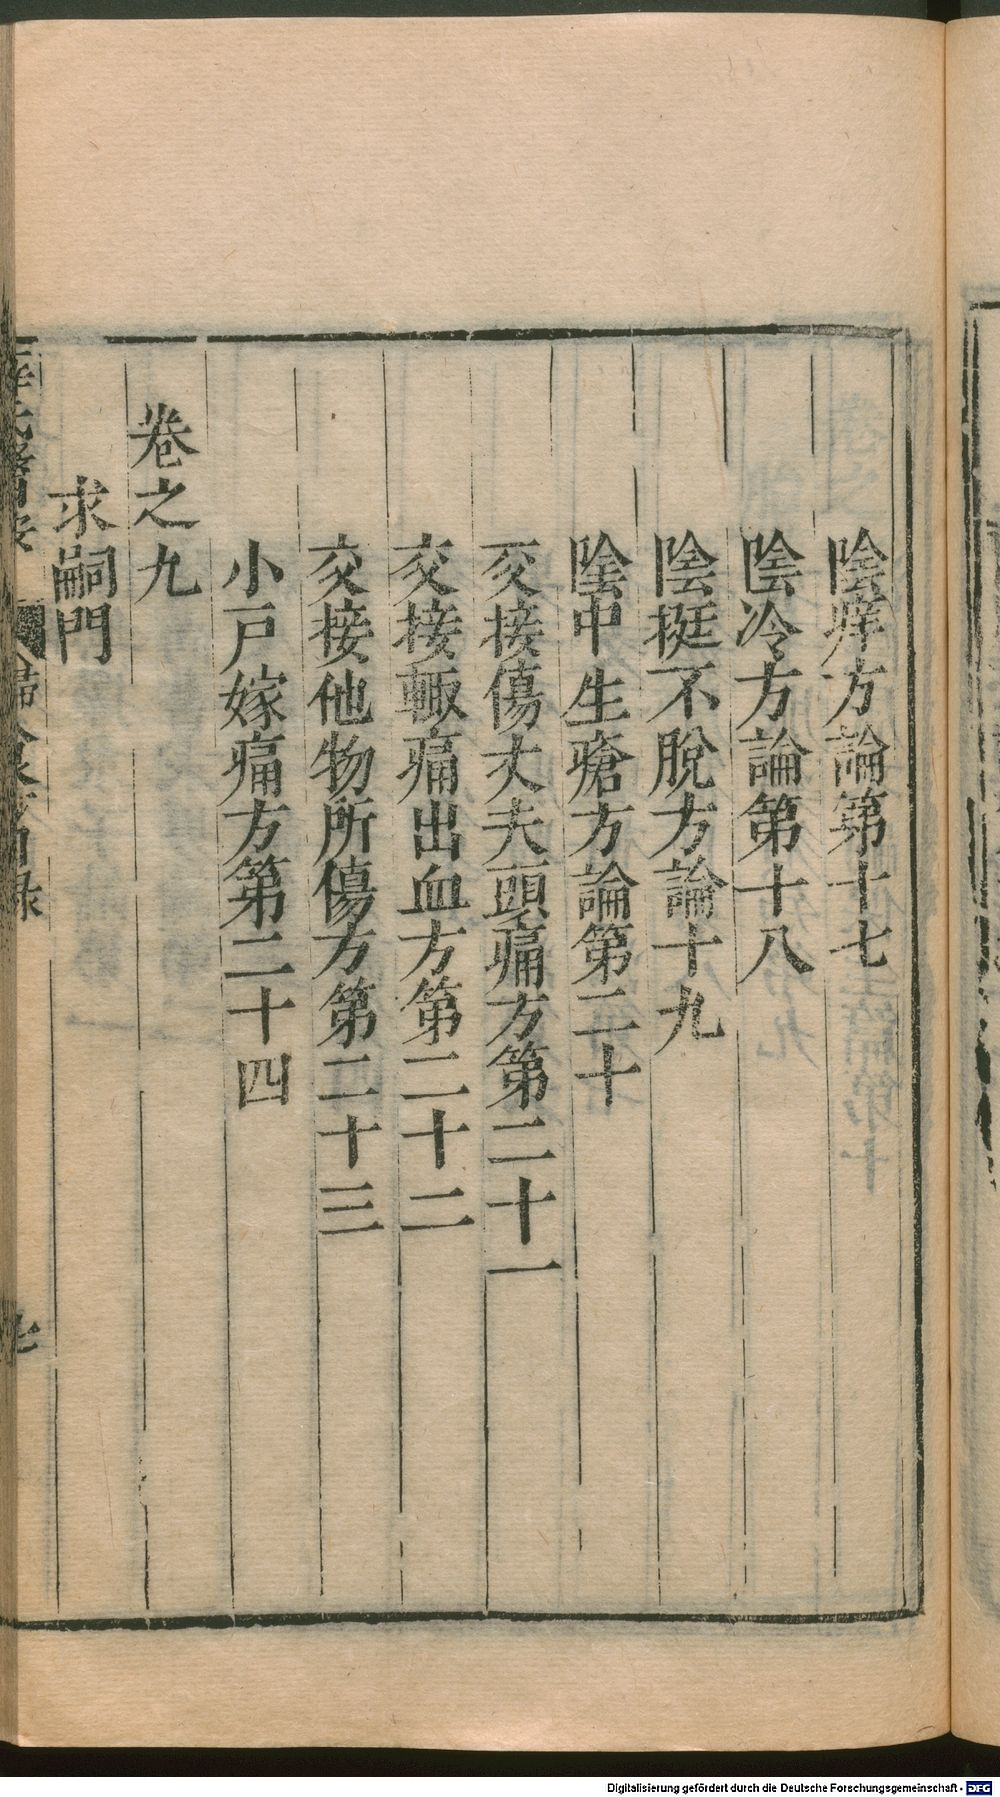 陰痒方論第十七
陰冷方論第十八
陰挺下脫方論十九
陰中生瘡方論第二十
交接傷丈夫頭痛方第二十一
交接輙痛出血方第二十二
交接他物所傷方第二十三
小戸嫁痛方第二十四
卷之九
求嗣門
Digitalisierung gefördert durch die Deutsche Forschungsgemeinschaft - DFG